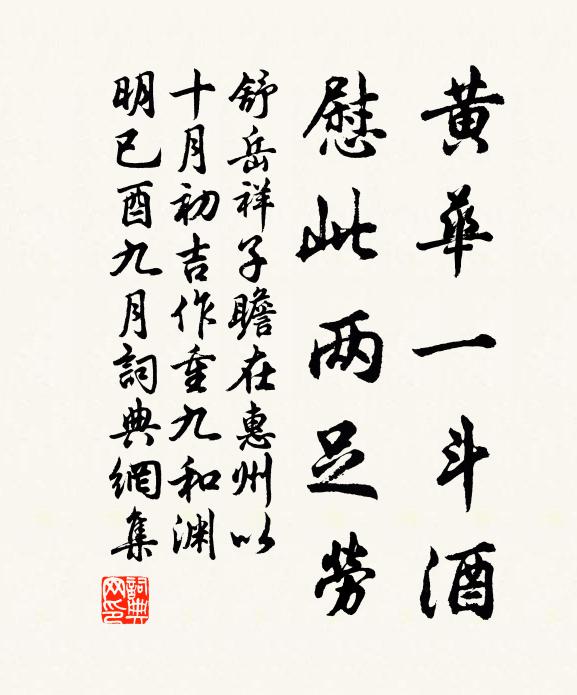 黃華一斗酒
慰此兩足勞
舒岳祥子瞻在惠州以
十月初吉作重九和渊
明已酉九月詞典網集
詞典網印